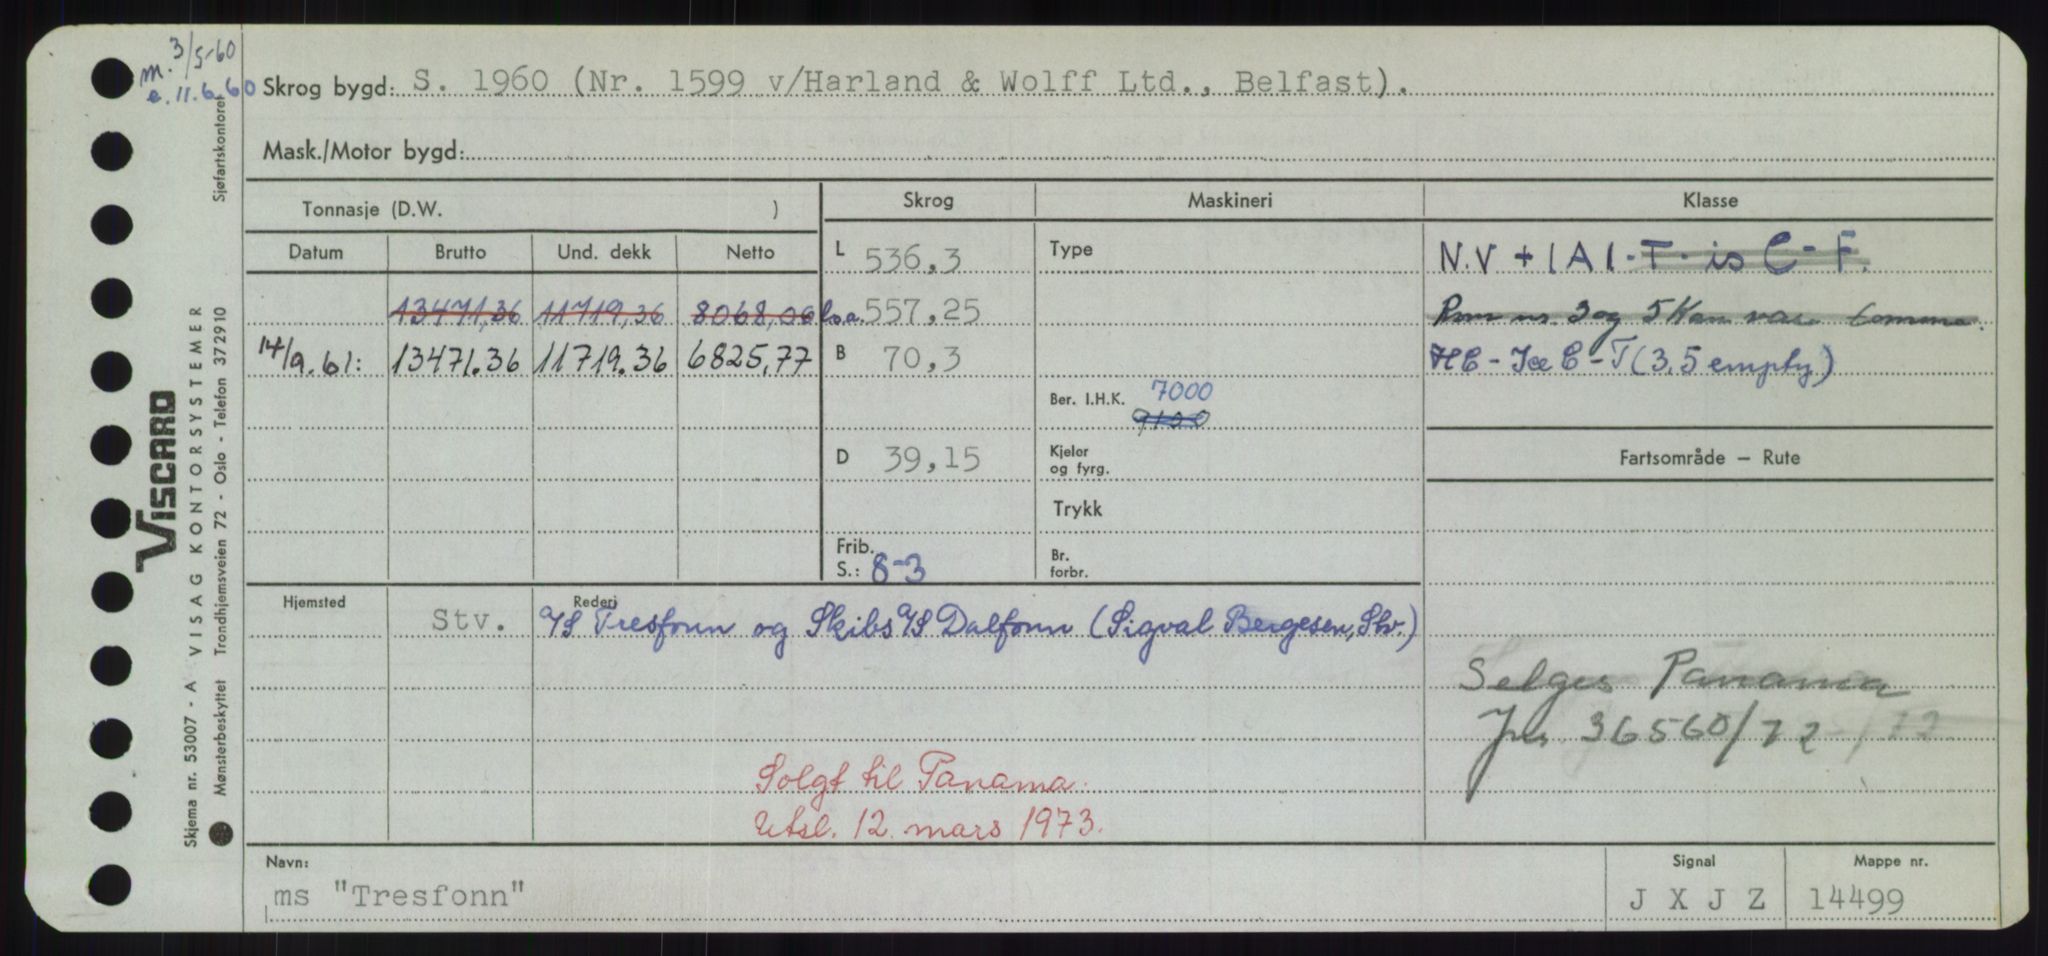 m. 3/5-60
e. 11.6.60
Skrog bygd: S. 1960 (Nr. 1599 v/Harland & Wolff Ltd., Belfast).
Mask./Motor bygd:
Tonnasje (D.W. )
Skrog
Maskineri
Klasse
Datum Brutto Und. dekk Netto
L 536,3
Type
N.V + 1A1-T-is C-F.
13471,36 11719,36 8068,06
l.o.a. 557,25
Rom nr. 3 og 5 Kan være tomme.
14/9.61: 13471.36 11719.36 6825,77
B 70,3
HC - Ice C - T (3,5 empty)
Ber. I.H.K. 7000
9100
D 39,15
Kjeler
og fyrg.
Fartsområde – Rute
Trykk
Frib.
S.: 8-3
Br.
forbr.
Hjemsted
Rederi
Stv. A/S Tresfonn og Skibs A/S Dalfonn (Sigval Bergesen, Stv.)
Selges Panama
Jnr. 36560/72
Solgt til Panama.
Utsl. 12. mars 1973.
Navn:
ms "Tresfonn"
Signal
J X J Z
Mappe nr.
14499
VISCARD
Skjema nr. 53007 - A VISAG KONTORSYSTEMER
Mønsterbeskyttet Trondhjemsveien 72 - Oslo - Telefon 372910 Sjøfartskontoret